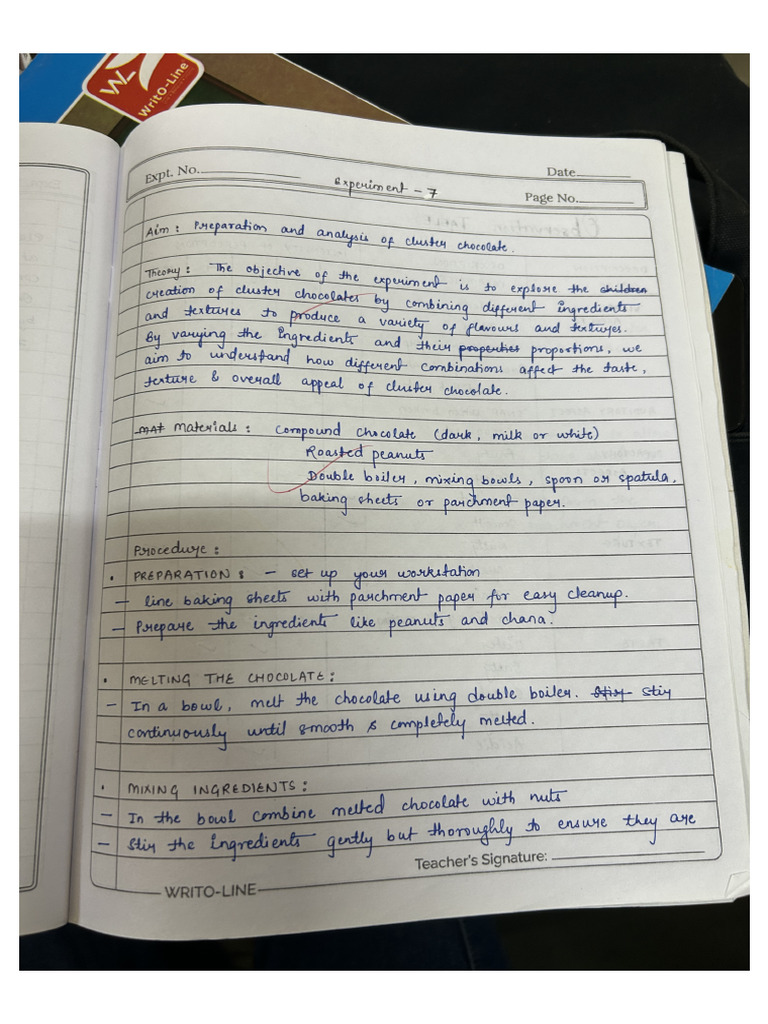 WL
WritO-Line
Expt. No.
Date
Experiment - 7
Page No.
Aim : Preparation and analysis of cluster chocolate.
Theory : The objective of the experiment is to explore the children
creation of cluster chocolates by combining different ingredients
and textures to produce a variety of flavours and textures.
By varying the Ingredients and their properties proportions, we
aim to understand how different combinations affect the taste,
texture & overall appeal of cluster chocolate.
MAT Materials : Compound chocolate (dark, milk or white)
Roasted peanuts
Double boiler, mixing bowls, spoon or spatula,
baking sheets or parchment paper.
Procedure :
• PREPARATION : - set up your workstation
- line baking sheets with parchment paper for easy cleanup.
- Prepare the ingredients like peanuts and chana.
• MELTING THE CHOCOLATE :
- In a bowl, melt the chocolate using double boiler. Stir stir
continuously until smooth & completely melted.
• MIXING INGREDIENTS :
- In the bowl combine melted chocolate with nuts
- Stir the Ingredients gently but thoroughly to ensure they are
Teacher's Signature:
WRITO-LINE